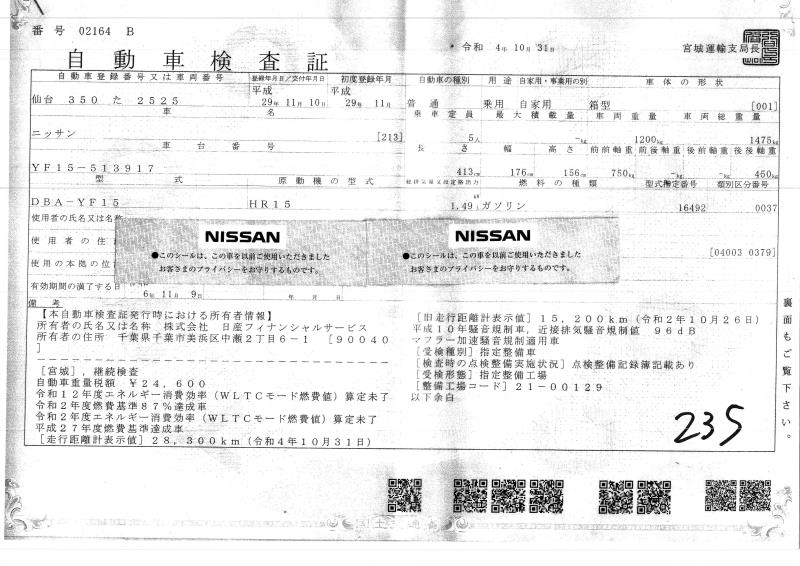 番号 02164 B
令和 4年10月31日 宮城運輸支局長
自動車検査証
自動車登録番号又は車両番号 登録年月日/交付年月日 初度登録年月 自動車の種別 用途 自家用・事業用の別 車体の形状
仙台 350 た 2525 平成 29年11月10日 平成 29年11月 普通 乗用 自家用 箱型 [001]
車名 乗車定員 最大積載量 車両重量 車両総重量
ニッサン [213] 5人 -kg 1200kg 1475kg
車台番号 長さ 幅 高さ 前前軸重 前後軸重 後前軸重 後後軸重
YF15-513917 413cm 176cm 156cm 750kg -kg -kg 450kg
型式 原動機の型式 総排気量又は定格出力 燃料の種類 型式指定番号 類別区分番号
DBA-YF15 HR15 1.49 ガソリン 16492 0037
使用者の氏名又は名称
NISSAN
●このシールは、この車を以前ご使用いただきました
お客さまのプライバシーをお守りするものです。
NISSAN
●このシールは、この車を以前ご使用いただきました
お客さまのプライバシーをお守りするものです。
使用者の住
[04003 0379]
使用の本拠の位
有効期間の満了する日
6年11月 9日 年 月 日
備考
【本自動車検査証発行時における所有者情報】
所有者の氏名又は名称 株式会社 日産フィナンシャルサービス
所有者の住所 千葉県千葉市美浜区中瀬2丁目6-1 [90040
]
[宮城],継続検査
自動車重量税額 ¥24,600
令和12年度エネルギー消費効率(WLTCモード燃費値)算定未了
令和2年度燃費基準87%達成車
令和2年度エネルギー消費効率(WLTCモード燃費値)算定未了
平成27年度燃費基準達成車
[走行距離計表示値]28,300km(令和4年10月31日)
[旧走行距離計表示値]15,200km(令和2年10月26日)
平成10年騒音規制車,近接排気騒音規制値 96dB
マフラー加速騒音規制適用車
[受検種別]指定整備車
[検査時の点検整備実施状況]点検整備記録簿記載あり
[受検形態]指定整備工場
[整備工場コード]21-00129
以下余白
235
裏面もご覧下さい。